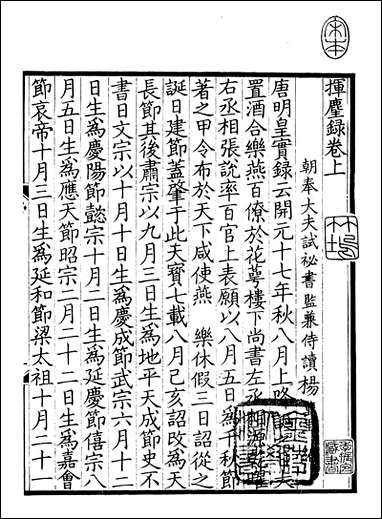 宋本
揮塵録卷上
竹塢
朝奉大夫試祕書監兼侍讀楊
唐明皇實録云開元十七年秋八月上降
置酒合樂燕百僚於花萼樓下尚書左丞相源乾曜
右丞相張說率百官上表願以八月五日爲千秋節
著之甲令布於天下咸使燕 樂休假三日詔從之
誕日建節蓋肇于此天寶七載八月己亥詔改爲天
長節其後肅宗以九月三日生爲地平天成節史不
書日文宗以十月十日生爲慶成節武宗六月十二
日生爲慶陽節懿宗十月二日生爲延慶節僖宗八
月五日生爲應天節昭宗二月二十二日生爲嘉會
節哀帝十月三日生爲延和節梁太祖十月二十一